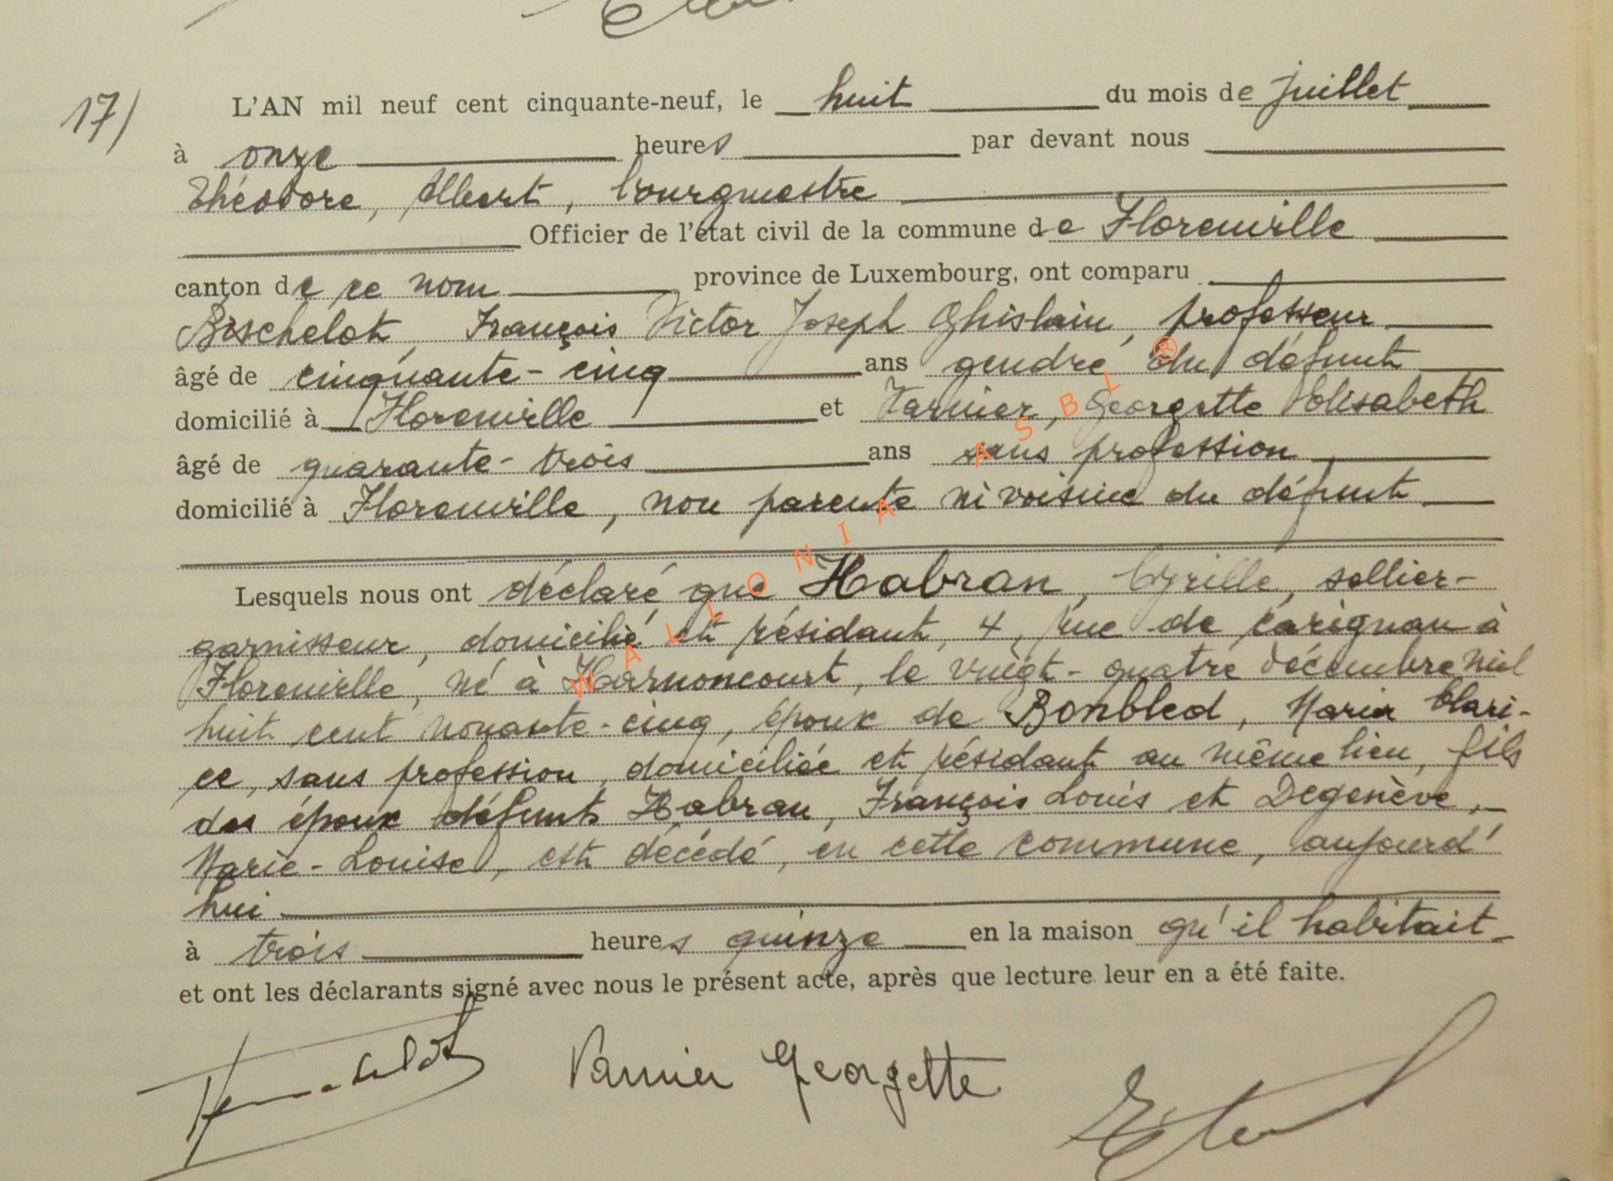 17/
L'AN mil neuf cent cinquante-neuf, le huit du mois de juillet
à onze heures par devant nous
Théodore, Albert, bourgmestre
Officier de l'état civil de la commune de Florenville
canton de ce nom province de Luxembourg, ont comparu
François Victor Joseph Ghislain, professeur
âgé de cinquante-cinq ans gendre du défunt
domicilié à Florenville et Georgette Elisabeth
âgé de quarante-trois ans sans profession
domicilié à Florenville, non parente ni voisine du défunt
Lesquels nous ont déclaré que Habran, Cyrille, sellier-
garnisseur, domicilié et résidant, 4, rue de Carignan à
Florenville, né à Harnoncourt, le vingt-quatre décembre mil
huit cent nonante-cinq, époux de Bonbled, Maria Clari-
ce, sans profession, domiciliée et résidant au même lieu, fils
des époux défunts Habran, François Louis et Degenève,
Marie-Louise, est décédé, en cette commune, aujourd'
hui
à trois heures quinze en la maison qu'il habitait
et ont les déclarants signé avec nous le présent acte, après que lecture leur en a été faite.
Georgette
WALLONIA ASBL ®